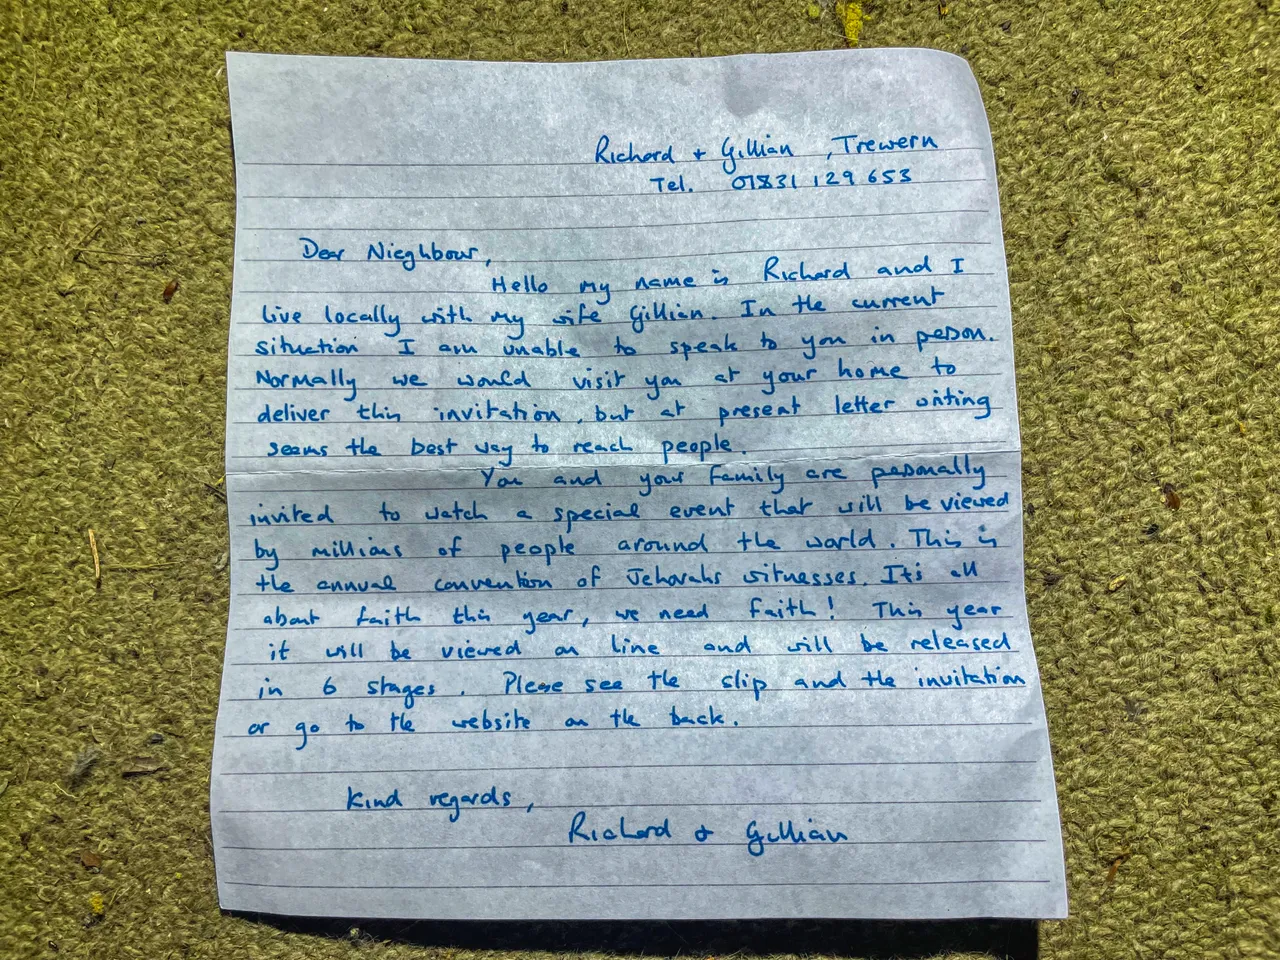 Richard + Gillian , Trewern
Tel. 01831 129 653
Dear Nieghbour,
Hello my name is Richard and I
live locally with my wife Gillian. In the current
situation I am unable to speak to you in person.
Normally we would visit you at your home to
deliver this invitation, but at present letter writing
seems the best way to reach people.
You and your family are personally
invited to watch a special event that will be viewed
by millions of people around the world. This is
the annual convention of Jehovahs witnesses. It's all
about faith this year, we need faith! This year
it will be viewed on line and will be released
in 6 stages. Please see the slip and the invitation
or go to the website on the back.
Kind regards,
Richard & Gillian